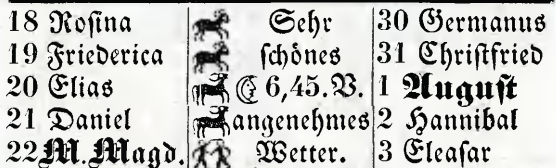 18 Roſina Sehr 30 Germanus
19 Friederica ſchönes 31 Chriſtfried
20 Elias ☾ 6,45.V. 1 Auguſt
21 Daniel angenehmes 2 Hannibal
22 M. Magd. Wetter. 3 Eleaſar